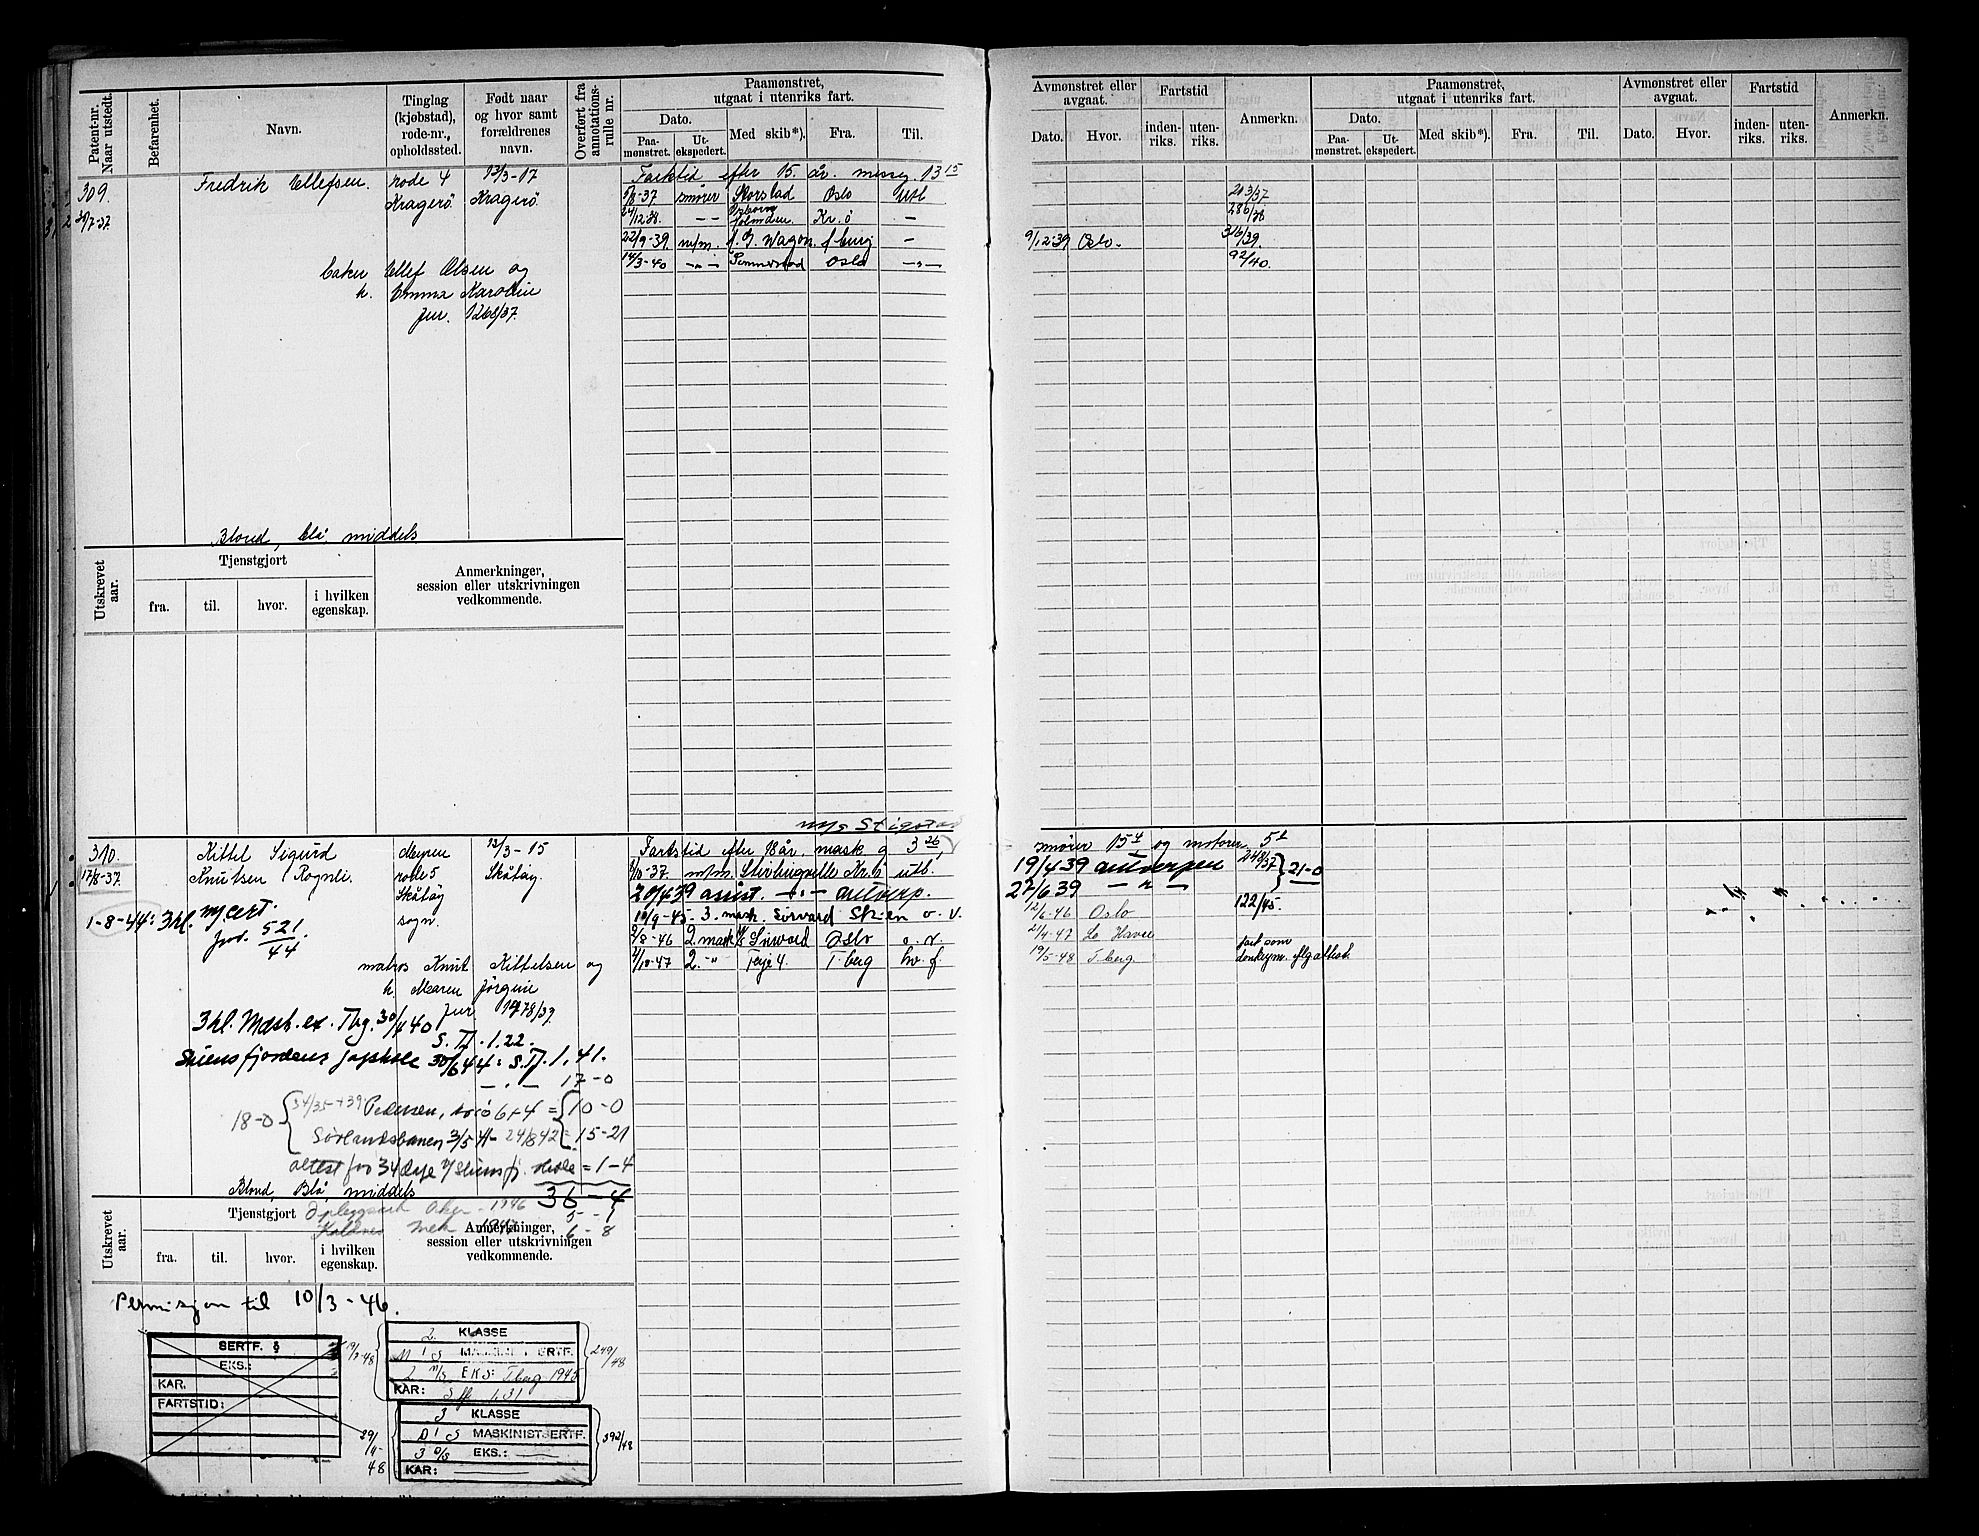 Patent-nr. Naar utstedt.
Befarenhet.
Navn.
Tinglag (kjøbstad), rode-nr., opholdssted.
Født naar og hvor samt forældrenes navn.
Overført fra annotations-rulle nr.
Paamønstret, utgaat i utenriks fart.
Dato.
Paa-mønstret.
Ut-ekspedert.
Med skib*).
Fra.
Til.
Avmønstret eller avgaat.
Dato.
Hvor.
Fartstid
inden-riks.
uten-riks.
Anmerkn.
Paamønstret, utgaat i utenriks fart.
Dato.
Paa-mønstret.
Ut-ekspedert.
Med skib*).
Fra.
Til.
Avmønstret eller avgaat.
Dato.
Hvor.
Fartstid
inden-riks.
uten-riks.
Anmerkn.
309.
30/7-37.
Fredrik Ellefsen. rode 4 13/3-17
Kragerö Kragerö
Fartstid efter 15. år. messeg. 13 15
5/8-37 smører Storstad Oslo utl 213/37
24/12 38. Kr.ö 286/38
22/9-39. m/m. f. G. Wagon. f burg 9/12-39 Oslo. 316/39.
14/3-40 Sommerstad Oslo 92/40.
baker Ellef Olsen og
h. Emma Karoline
jur. 1268/37.
Blond, blå, middels
Utskrevet aar.
Tjenstgjort
fra.
til.
hvor.
i hvilken egenskap.
Anmerkninger, session eller utskrivningen vedkommende.
m/s Stigstad
310.
17/8-37.
Kittel Sigurd
Knutsen Rognli.
rode 5
Skåtöy
sogn.
13/3-15
Skåtöy.
Fartstid efter 18 år. mask g 3 26 smører 15 4 og motorm. 5
m/m. Stirlingville Kr.ö utl. 19/4 39 antwerpen 248/37 21-0
20/4 39 assist. antverp. 27/6 39
10/9-45- 3. mask. Sørvard Skien o. v. 12/6-46 Oslo 122/45.
2/8-46 2. mask Oslo o. v. 21/4-47 Le Havre
1/10-47 2. Terje 4. T-berg hv. f. 19/5-48 T.berg
fart som
donkeym. iflg attest.
1-8-44: 3 kl. ny cert.
jnr. 521/44
matros Knut Kittelsen og
h. Maren Jørgine
jur 1478/37.
3 kl. Mask. ex. Tbg. 30/4 40
S. Tf. 1.22.
Skiensfjordens fagskole 30/6 44: S. Tf. 1,41.
17-0
18-0 34/35 + 39 Pedersen, 6+4 = 10-0
Sørlandsbanen 3/5 41- 24/8 42 = 15-21
attest for 34 dage v/ Skiensfj. = 1-4
Blond, Blå, middels
36-4
Oplagsark Aker 1946 5-1
Kaldnes Mek 6-8
Utskrevet aar.
Tjenstgjort
fra.
til.
hvor.
i hvilken egenskap.
Anmerkninger, session eller utskrivningen vedkommende.
Permisjon til 10/3-46.
SERTF. §
EKS.:
KAR.
FARTSTID:
19/3-48
2. KLASSE
M/S MASKINISTSERTF.
2 m/s EKS: Tberg 1945
KAR: S Tf 1.31
249/48
29/4-48
3 KLASSE
D/S MASKINISTSERTF.
3 D/S EKS.:
KAR:
392/48